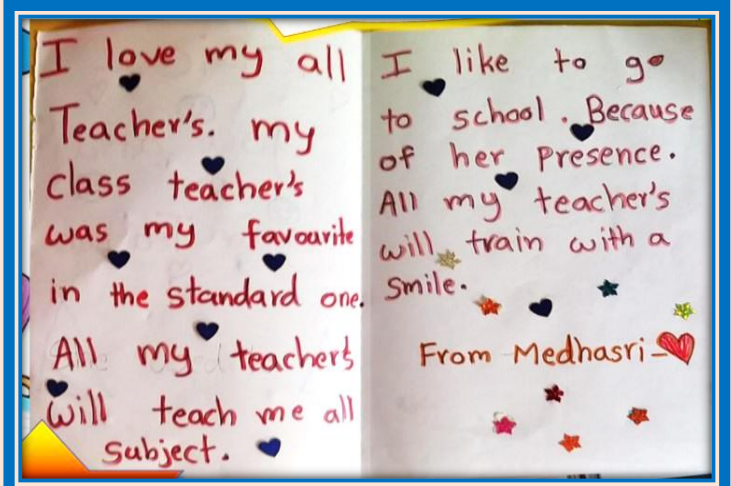 I love my all
Teacher's. my
class teacher's
was my favourite
in the standard one.
All my teacher's
will teach me all
subject.
I like to go
to school. Because
of her presence.
All my teacher's
will train with a
smile.
From Medhasri-